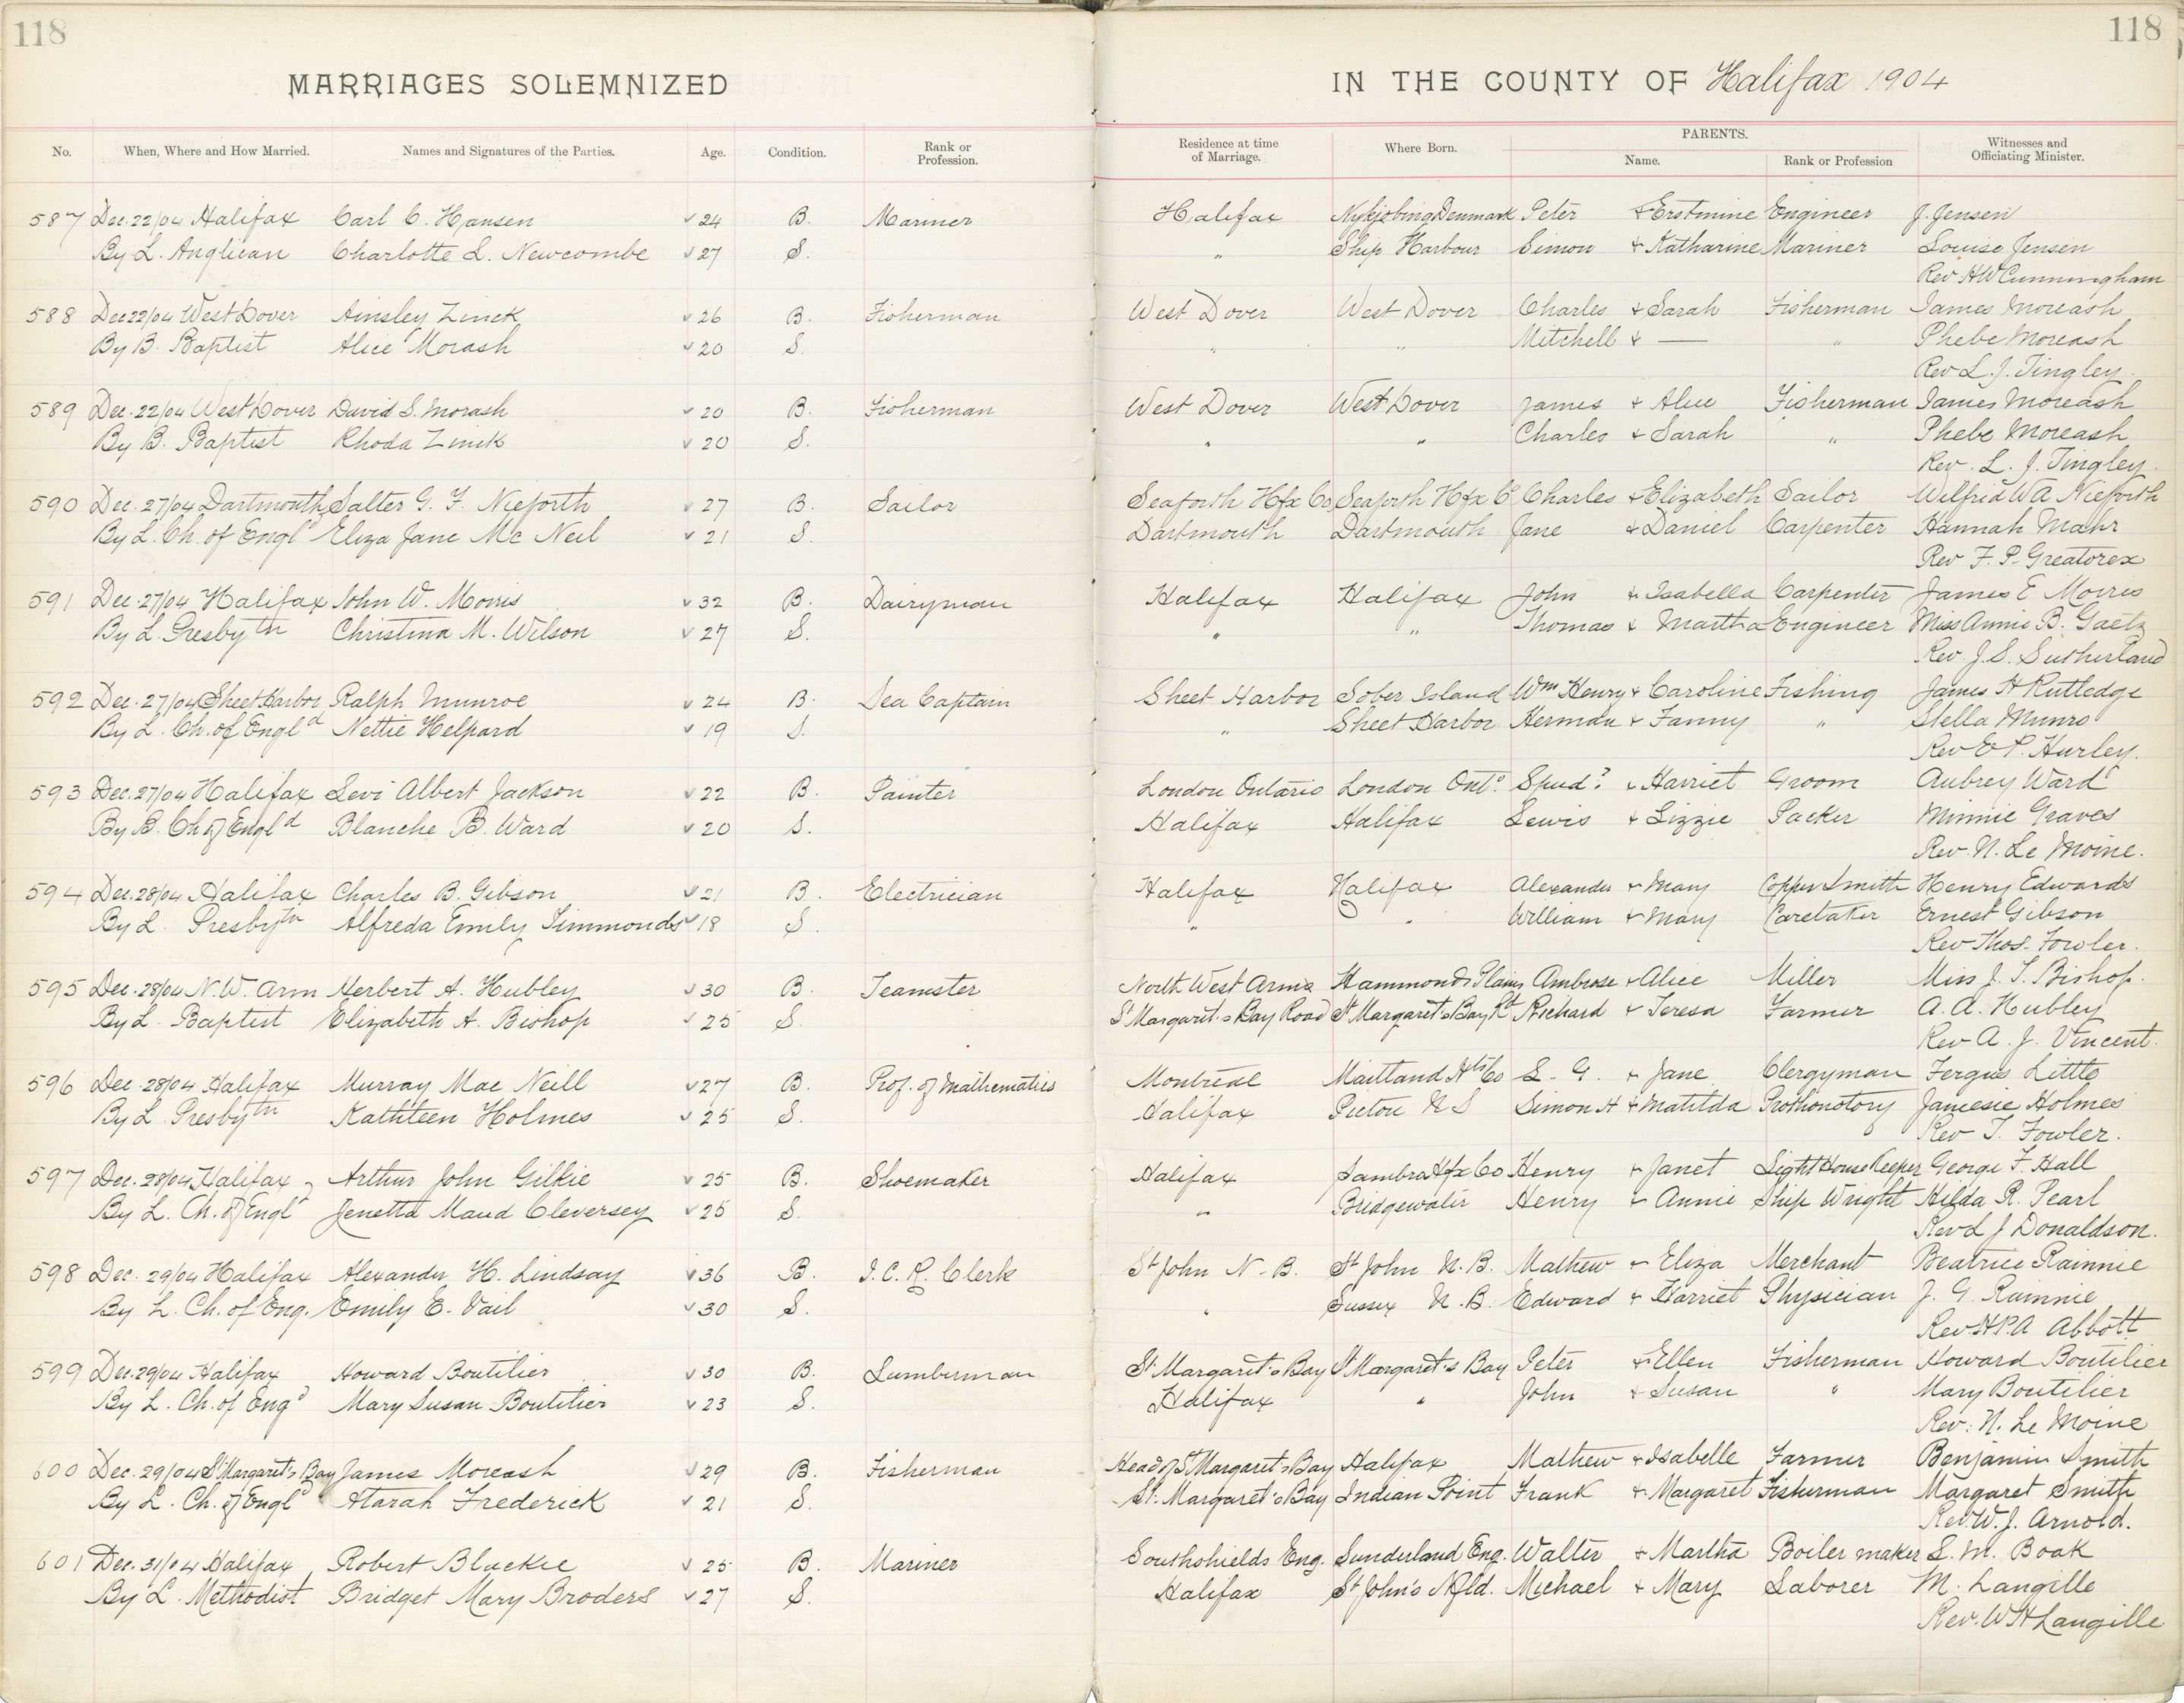 118
118
MARRIAGES SOLEMNIZED
IN THE COUNTY OF Halifax 1904
No. When, Where and How Married. Names and Signatures of the Parties. Age. Condition. Rank or Profession. Residence at time of Marriage. Where Born. PARENTS. Name. Rank or Profession Witnesses and Officiating Minister.
587 Dec. 22/04 Halifax Carl C. Hansen 24 B. Mariner Halifax Nykjobing Denmark Peter & Erstmine Engineer J. Jensen
By L. Anglican Charlotte L. Newcombe 27 S. " Ship Harbour Simon & Katharine Mariner Louise Jensen
Rev HW Cunningham
588 Dec 22/04 West Dover Ainsley Zinck 26 B. Fisherman West Dover West Dover Charles & Sarah Fisherman James Moreash
By B. Baptist Alice Morash 20 S. " " Mitchell & — " Phebe Moreash
Rev L. J. Tingley.
589 Dec. 22/04 West Dover David S. Morash 20 B. Fisherman West Dover West Dover James & Alice Fisherman James Moreash
By B. Baptist Rhoda Zinck 20 S. " " Charles & Sarah " Phebe Moreash
Rev. L. J. Tingley.
590 Dec. 27/04 Dartmouth Salter G. F. Nieforth 27 B. Sailor Seaforth Hfx Co Seaforth Hfx Co Charles & Elizabeth Sailor Wilfrid WA Nieforth
By L. Ch. of Engld Eliza Jane Mc Neil 21 S. Dartmouth Dartmouth Jane & Daniel Carpenter Hannah Mahr
Rev F. P. Greatorex
591 Dec. 27/04 Halifax John W. Morris 32 B. Dairyman Halifax Halifax John & Isabella Carpenter James E Morris
By L. Presbytn Christina M. Wilson 27 S. " " Thomas & Martha Engineer Miss Annie B. Gaetz
Rev J. S. Sutherland
592 Dec. 27/04 Sheet Harbor Ralph Munroe 24 B. Sea Captain Sheet Harbor Sober Island Wm Henry & Caroline Fishing James H Rutledge
By L. Ch. of Engld Nettie Helpard 19 S. " Sheet Harbor Herman & Fanny " Stella Munro
Rev E P. Hurley.
593 Dec. 27/04 Halifax Levi Albert Jackson 22 B. Painter London Ontario London Onto. Spud? & Harriet Groom Aubrey Ward
By B. Ch of Engld Blanche B. Ward 20 S. Halifax Halifax Lewis & Lizzie Packer Minnie Graves
Rev. N. Le Moine.
594 Dec. 28/04 Halifax Charles B. Gibson 21 B. Electrician Halifax Halifax Alexander & Mary Copper Smith Henry Edwards
By L. Presbytn Alfreda Emily Simmonds 18 S. " " William & Mary Caretaker Ernest Gibson
Rev Thos. Fowler.
595 Dec. 28/04 N.W. Arm Herbert A. Hubley 30 B. Teamster North West Arms Hammonds Plains Ambrose & Alice Miller Miss J. T. Bishop.
By L. Baptist Elizabeth A. Bishop 25 S. St Margaret's Bay Road St Margaret's Bay Rd Richard & Teresa Farmer A. A. Hubley
Rev A. J. Vincent.
596 Dec. 28/04 Halifax Murray Mac Neill 27 B. Prof. of Mathematics Montreal Maitland Hts Co L. G. & Jane Clergyman Fergus Little
By L Presbytn Kathleen Holmes 25 S. Halifax Pictou N S Simon H & Matilda Prothonotory Jamesie Holmes
Rev T. Fowler.
597 Dec. 28/04 Halifax Arthur John Gilkie 25 B. Shoemaker Halifax Sambro Hfx Co Henry & Janet Light House Keeper George F. Hall
By L. Ch. of Engld Jenetta Maud Cleversey 25 S. " Bridgewater Henry & Annie Ship Wright Hilda R. Pearl
Rev L J Donaldson.
598 Dec. 29/04 Halifax Alexander H. Lindsay 36 B. I.C.R. Clerk St John N. B. St John N. B. Mathew & Eliza Merchant Beatrice Rainnie
By L. Ch. of Eng. Emily E. Vail 30 S. " Sussex N. B. Edward & Harriet Physician J. G. Rainnie
Rev H P. A Abbott
599 Dec. 29/04 Halifax Howard Boutilier 30 B. Lumberman St. Margaret's Bay St Margaret's Bay Peter & Ellen Fisherman Howard Boutilier
By L. Ch. of Engd Mary Susan Boutilier 23 S. Halifax " John & Susan " Mary Boutilier
Rev. N. Le Moine
600 Dec. 29/04 St Margaret's Bay James Moreash 29 B. Fisherman Head of St Margaret's Bay Halifax Mathew & Isabelle Farmer Benjamin Smith
By L. Ch. of Engld Atarah Frederick 21 S. St. Margaret's Bay Indian Point Frank & Margaret Fisherman Margaret Smith
Rev W. J. Arnold.
601 Dec. 31/04 Halifax Robert Blackie 25 B. Mariner Southshields Eng. Sunderland Eng. Walter & Martha Boiler maker L. M. Boak
By L Methodist Bridget Mary Broders 27 S. Halifax St John's Nfld. Michael & Mary Laborer M. Langille
Rev. W H Langille